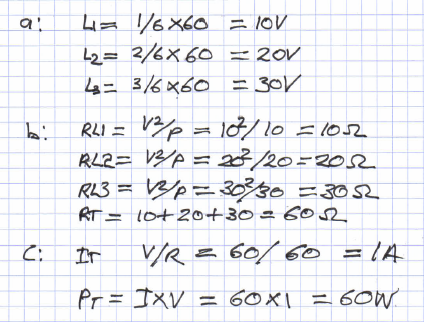 a: L1= 1/6×60 = 10V
L2= 2/6×60 = 20V
L3= 3/6×60 = 30V
b: RL1 = V²/P = 10²/10 = 10Ω
RL2= V²/P = 20²/20 = 20Ω
RL3 = V²/P = 30²/30 = 30Ω
RT = 10+20+30 = 60Ω
C: IT V/R = 60/60 = 1A
PT = I×V = 60×1 = 60W